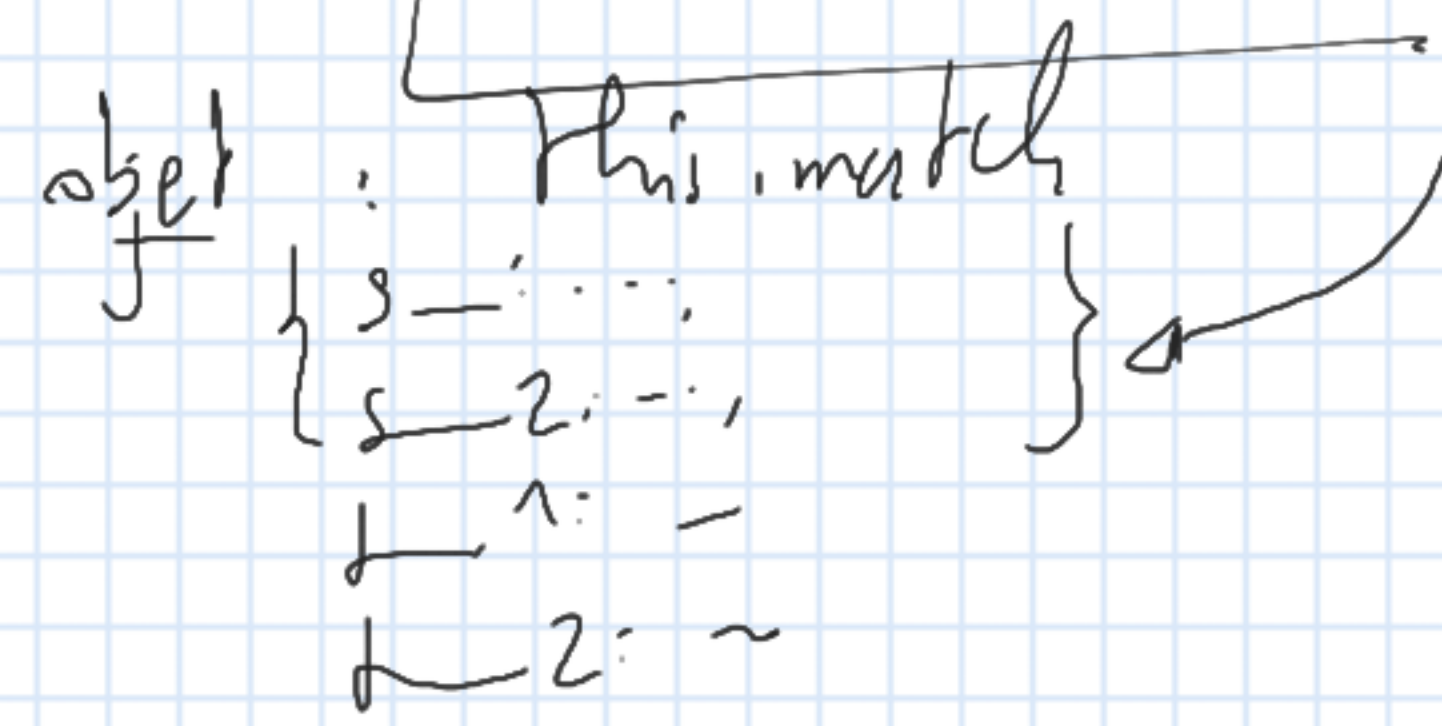 objet : This.match
{ s_1: ... ; }
s_2: - . ,
t_1: -
t_2: ~